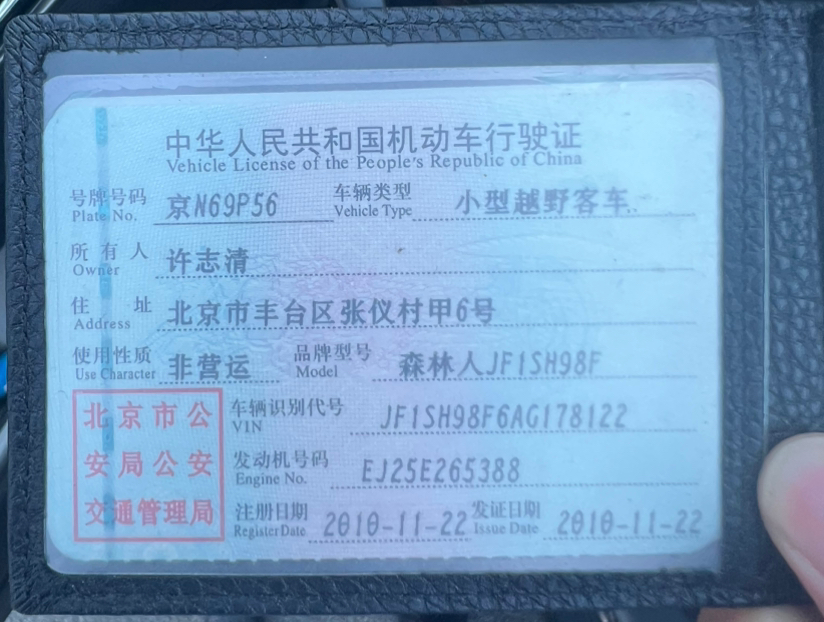 中华人民共和国机动车行驶证
Vehicle License of the People's Republic of China
号牌号码 京N69P56 车辆类型 小型越野客车
Plate No. Vehicle Type
所有人 许志清
Owner
住址 北京市丰台区张仪村甲6号
Address
使用性质 非营运 品牌型号 森林人JF1SH98F
Use Character Model
北京市公 车辆识别代号 JF1SH98F6AG178122
VIN
安局公安 发动机号码 EJ25E265388
Engine No.
交通管理局 注册日期 2010-11-22 发证日期 2010-11-22
Register Date Issue Date